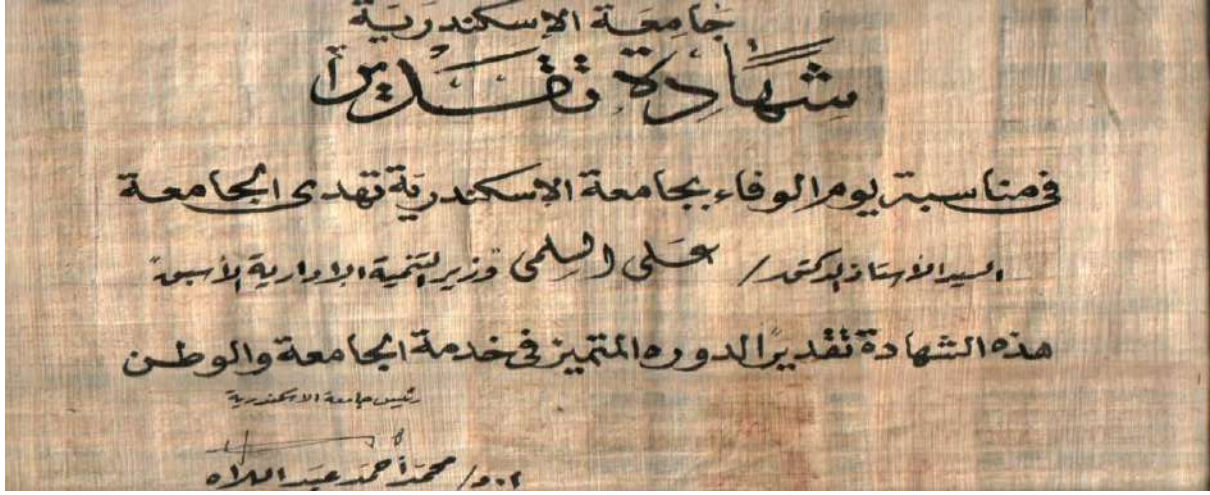 جامعة الإسكندرية
شهادة تقدير
في مناسبة يوم الوفاء بجامعة الإسكندرية تهدى الجامعة
السيد الأستاذ الدكتور / على السلمى "وزير التنمية الإدارية الأسبق"
هذه الشهادة تقديرًا لدوره المتميز في خدمة الجامعة والوطن
رئيس جامعة الاسكندرية
أ.د/ محمد أحمد عبد اللاه